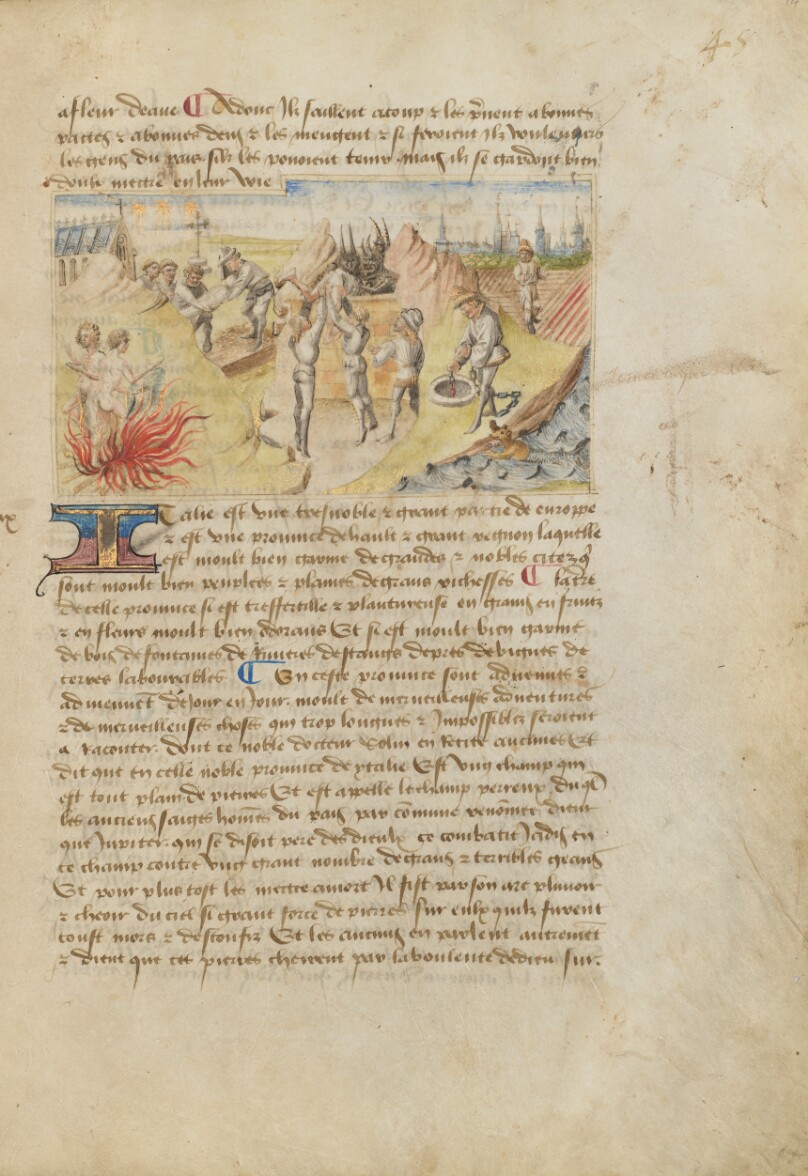 45
a fleur deaue ¶ Adonc Ilz saillent acoup & les prennent abonnes
pactes & abonnes dens & les menguent & si feroient Ilz voulentiers
les gens du pais silz les pouoient tenir mais ilz se gardent bien
deulx mettre en leur voie
Italie est vne tresnoble & grant partie de europpe
& est vne prouince de hault & grant regnon laquelle
est moult bien garnie de grandes & nobles citez q̄
sont moult bien peuplees & plaines de grans richesses ¶ la t̄re
de celle prouince si est tresfertille & plantureuse en grains en fruitz
& en fleurs moult bien odorans Et si est moult bien garnie
de bois de fontaines de Riuieres destangs de pres de vignes de
terres labourables ¶ En ceste prouince sont aduenues &
aduiennēt de Jour en Jour moult de merueilleuses aduentures
& de merueilleuses choses qui trop longues & Impossibles seroient
a Raconter dont ce noble docteur Solin en Recite aucunes Et
dit que en celle noble prouince de ytalie Est vng champ qui
est tout plain de pierres Et est appelle le champ perreux duq̄l
les anciens saiges hom̄es du pais par cōmune renōmee dient
que Jupiter qui se disoit pere des dieulx se combatit Jadis en
ce champ contre vng grant nombre de grans & terribles geans
Et pour plus tost les mettre amort Il fist par son art plouuoir
& cheoir du ciel si grant force de pierres sur eulx quilz furent
tous mors & desconfiz Et les aucuns en parlent autremēt
& dient que ces pierres cheirent par la voulente de dieu sur